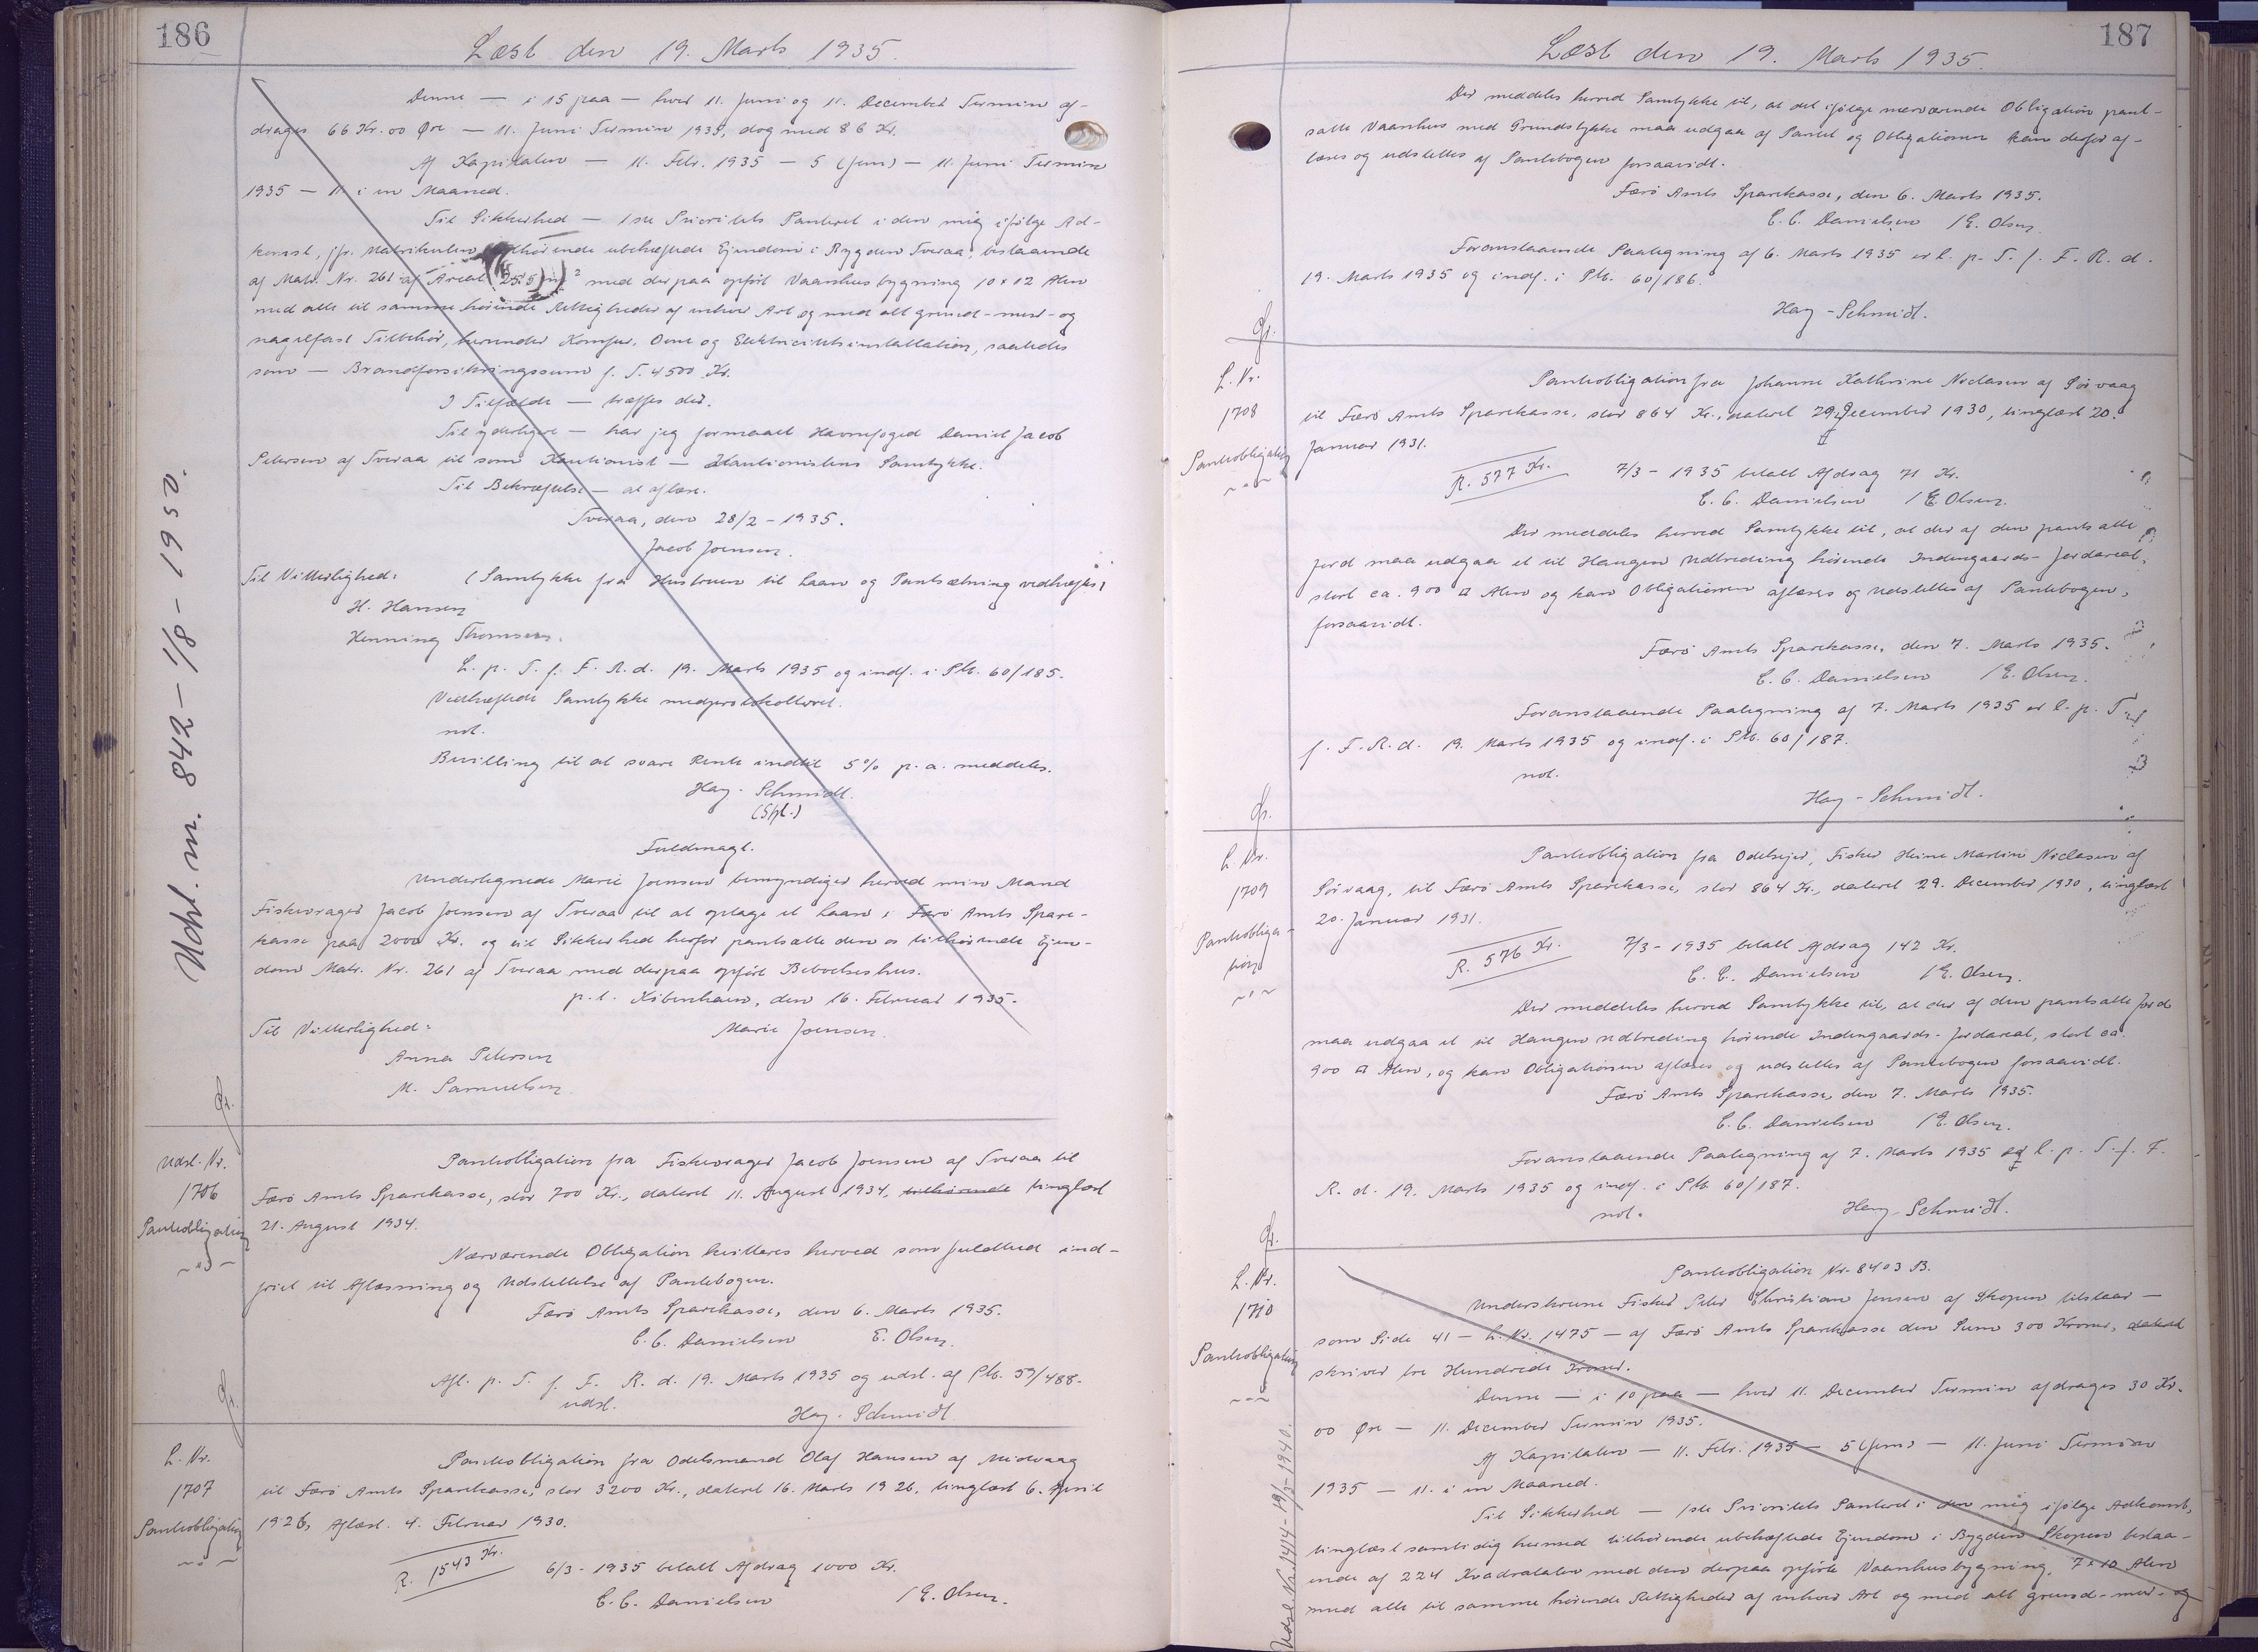 186
Læst den 19. Marts 1935.
Denne — i 15 paa — hver 11. Juni og 11. December Termin af-
drages 66 Kr. 00 Øre — 11. Juni Termin 1935, dog med 86 Kr.
Af Kapitalen — 11. Febr. 1935 — 5 (fem) — 11. Juni Termin
1935 — 11. i en Maaned.
Til Sikkerhed — 1ste Prioritets Panteret i den mig ifølge Ad-
komst, jfr. Matrikulen tilhørende ubehæftede Ejendom i Bygden Tveraa, bestaaende
af Matr. Nr. 261 af Areal (255) m² med derpaa opført Vaanhusbygning 10 x 12 Alen
med alle til samme hørende Rettigheder af enhver Art og med alt grund- mur- og
nagelfast Tilbehør, herunder Komfur, Ovne og Elektricitetsinstallation, saaledes
som — Brandforsikringssum f. T. 4500 Kr.
I Tilfælde — træffes der.
Til yderligere — har jeg formaaet Havnefoged Daniel Jacob
Petersen af Tveraa til som Kautionist — Kautionistens Samtykke.
Til Bekræftelse — at aflæse.
Tveraa, den 28/2 - 1935.
Jacob Joensen.
Til Vitterlighed: (Samtykke fra Hustruen til Laan og Pantsætning vedhæftes)
H. Hansen
Henning Thomsen.
L. p. T. f. F. R. d. 19. Marts 1935 og indf. i Ptb. 60/185.
Vedhæftede Samtykke medprotokolleret.
not.
Bevilling til at svare Rente indtil 5% p. a. meddeles.
Hay-Schmidt.
(Spl.)
Fuldmagt.
Undertegnede Marie Joensen bemyndiger herved min Mand
Fiskevrager Jacob Joensen af Tveraa til at optage et Laan i Færø Amts Spare-
kasse paa 2000 Kr. og til Sikkerhed herfor pantsætte den os tilhørende Ejen-
dom Matr. Nr. 261 af Tveraa med derpaa opført Beboelseshus.
p.t. København, den 16. Februar 1935.
Til Vitterlighed: Marie Joensen.
Anna Petersen
M. Samuelsen
Udsl. m. 842 - 1/8 - 1950.
Gr.
Udsl. Nr.
1706
Pantobligation
Pantobligation fra Fiskevrager Jacob Joensen af Tveraa til
Færø Amts Sparekasse, stor 700 Kr., dateret 11. August 1934, tilhørende tinglæst
21. August 1934.
Nærværende Obligation kvitteres herved som fuldtud ind-
friet til Aflæsning og Udslettelse af Pantebogen.
Færø Amts Sparekasse, den 6. Marts 1935.
C. C. Danielsen E. Olsen.
Afl. p. T. f. F. R. d. 19. Marts 1935 og udsl. af Ptb. 59/488.
udsl.
Hay-Schmidt.
Gr.
L. Nr.
1707
Pantobligation
Pantobligation fra Odelsmand Olaf Hansen af Midvaag
til Færø Amts Sparekasse, stor 3200 Kr., dateret 16. Marts 1926, tinglæst 6. April
1926, Aflæst 4. Februar 1930.
R. 1543 Kr.
6/3 - 1935 betalt Afdrag 1000 Kr.
C. C. Danielsen / E. Olsen.
187
Læst den 19. Marts 1935.
Der meddeles herved Samtykke til, at det ifølge nærværende Obligation pant-
satte Vaanhus med Grundstykke maa udgaa af Pantet og Obligationen kan derfor af-
læses og udslettes af Pantebogen forsaavidt.
Færø Amts Sparekasse, den 6. Marts 1935.
C. C. Danielsen / E. Olsen.
Foranstaaende Paategning af 6. Marts 1935 er l. p. T. f. F. R. d.
19. Marts 1935 og indf. i Ptb. 60/186.
Hay-Schmidt.
Gr.
L. Nr.
1708
Pantobligation
Pantobligation fra Johanne Kathrine Niclasen af Sørvaag
til Færø Amts Sparekasse, stor 864 Kr., dateret 29. December 1930, tinglæst 20.
Januar 1931.
R. 577 Kr.
7/3 - 1935 betalt Afdrag 71 Kr.
C. C. Danielsen / E. Olsen.
Der meddeles herved Samtykke til, at der af den pantsatte
Jord maa udgaa et til Haugen Udbreding hørende Indengaards-Jordareal,
stort ca. 900 □ Alen og kan Obligationen aflæses og udslettes af Pantebogen,
forsaavidt.
Færø Amts Sparekasse, den 7. Marts 1935.
C. C. Danielsen / E. Olsen.
Foranstaaende Paategning af 7. Marts 1935 er l. p. T.
f. F. R. d. 19. Marts 1935 og indf. i Ptb. 60/187.
not.
Hay-Schmidt.
Gr.
L. Nr.
1709
Pantobliga-
tion
Pantobligation fra Odelsejer, Fisker Heine Martin Niclasen af
Sørvaag, til Færø Amts Sparekasse, stor 864 Kr., dateret 29. December 1930, tinglæst
20. Januar 1931.
R. 576 Kr.
7/3 - 1935 betalt Afdrag 142 Kr.
C. C. Danielsen / E. Olsen.
Der meddeles herved Samtykke til, at der af den pantsatte Jord
maa udgaa et til Haugen Udbreding hørende Indengaards-Jordareal, stort ca.
900 □ Alen, og kan Obligationen aflæses og udslettes af Pantebogen forsaavidt.
Færø Amts Sparekasse, den 7. Marts 1935.
C. C. Danielsen / E. Olsen.
Foranstaaende Paategning af 7. Marts 1935 er l. p. T. f. F.
R. d. 19. Marts 1935 og indf. i Ptb. 60/187.
not.
Hay-Schmidt.
Gr.
L. Nr.
1710
Pantobligation
Pantobligation Nr. 8403 B.
Underskrevne Fisker Peter Christian Jensen af Skopun tilstaar —
som Side 41 — L. Nr. 1475 — af Færø Amts Sparekasse den Sum 300 Kroner, dateret
skriver tre Hundrede Kroner.
Denne — i 10 paa — hver 11. December Termin afdrages 30 Kr.
00 Øre — 11. December Termin 1935.
Af Kapitalen — 11. Febr. 1935 — 5 (fem) — 11. Juni Termin
1935 — 11. i en Maaned.
Til Sikkerhed — 1ste Prioritets Panteret i den mig ifølge Adkomst,
tinglæst samtidig hermed tilhørende ubehæftede Ejendom i Bygden Skopun bestaa-
ende af 224 Kvadratalen med den derpaa opførte Vaanhusbygning, 7 x 10 Alen
med alle til samme hørende Rettigheder af enhver Art og med alt grund- mur- og
Udsl. Nr. 1414 - 19/3 - 1940.